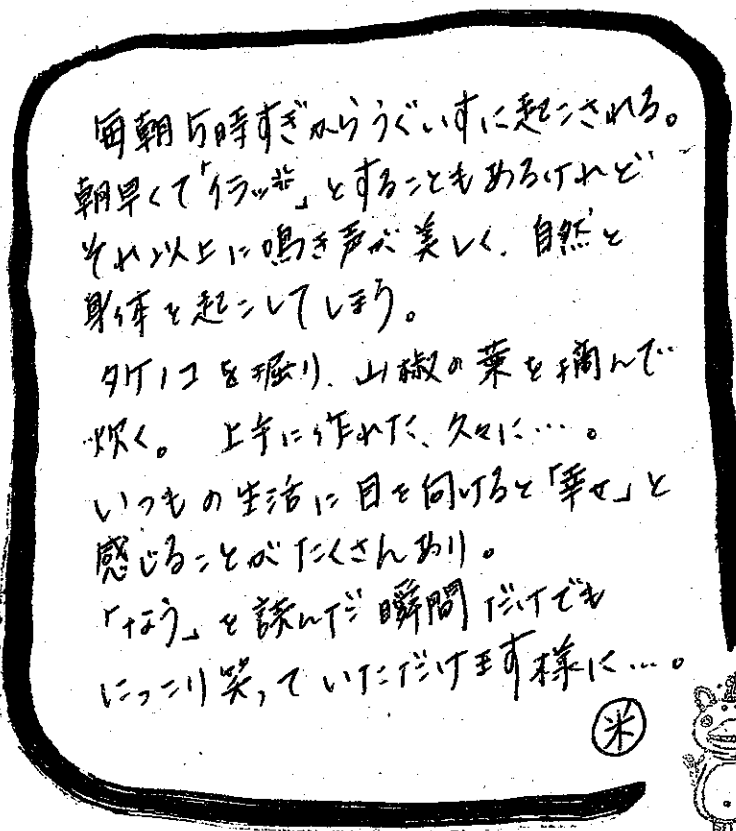 毎朝5時すぎからうぐいすに起こされる。
朝早くて「イラッ💢」とすることもあるけれど
それ以上に鳴き声が美しく、自然と
身体を起こしてしまう。
タケノコを掘り、山椒の葉を摘んで
炊く。 上手に作れた、久々に…。
いつもの生活に目を向けると「幸せ」と
感じることがたくさんあり。
「なう」を読んだ瞬間だけでも
にっこり笑っていただけます様に…。
米